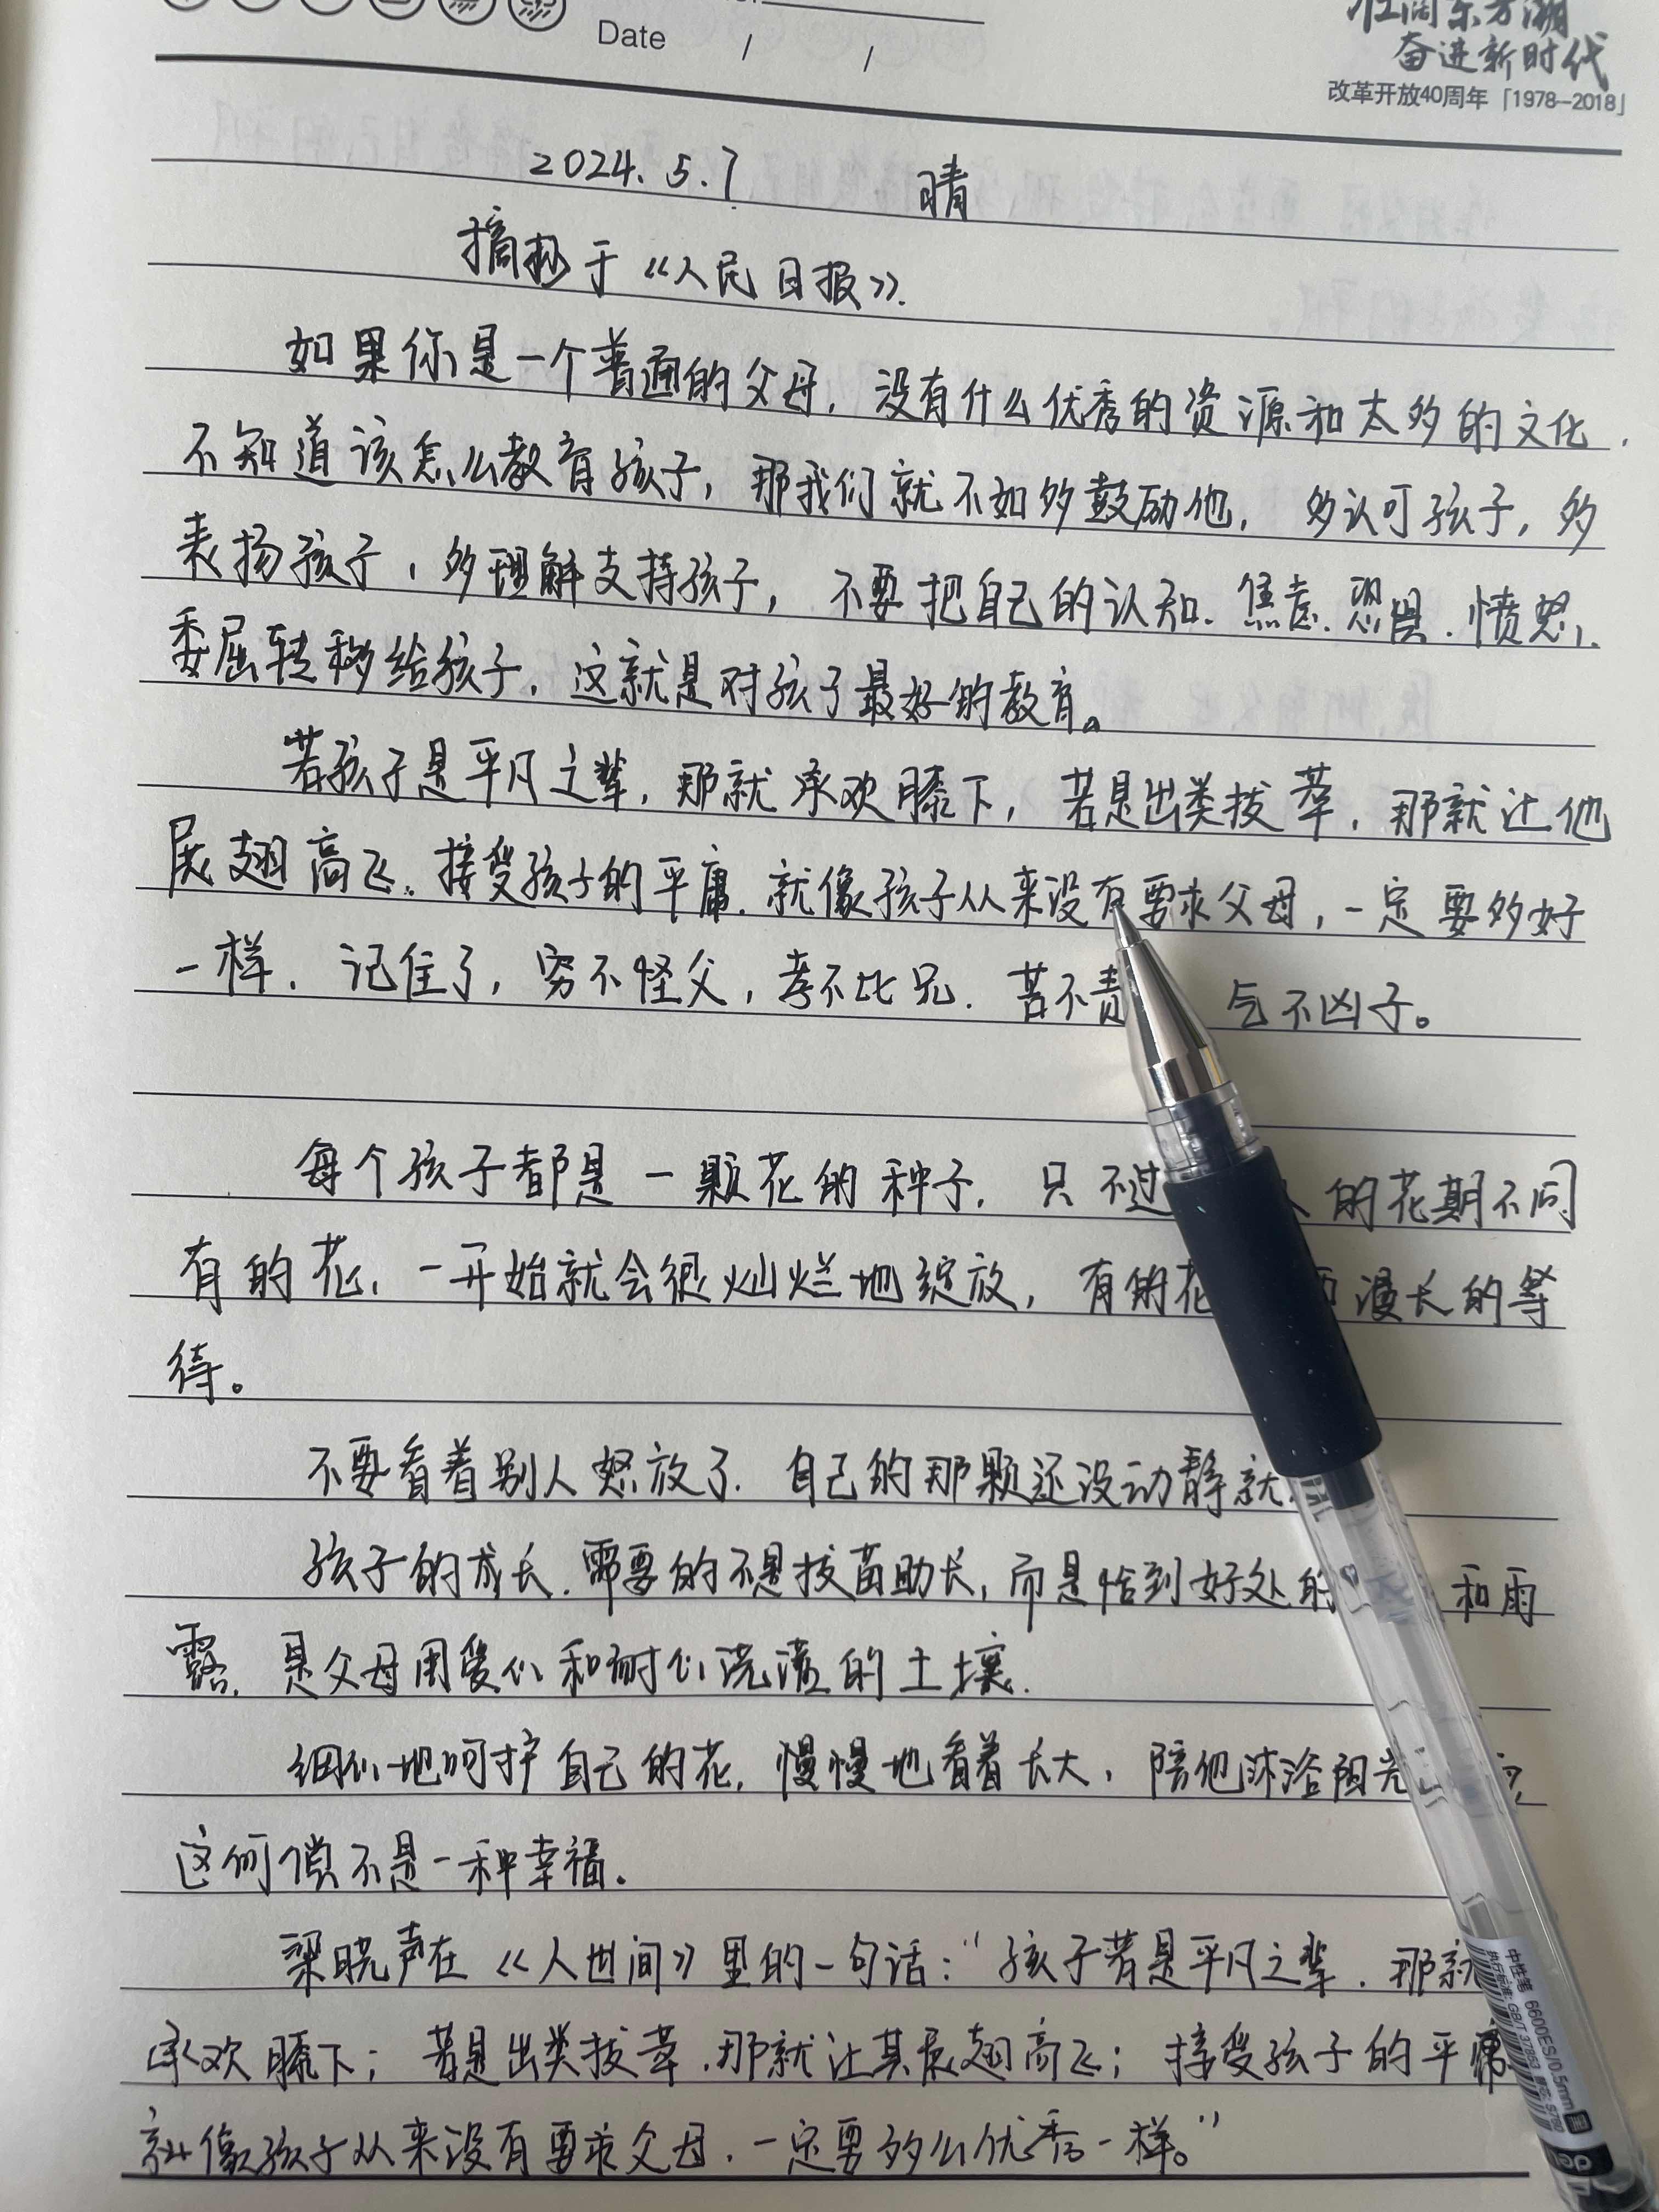 Date / /
奋进新时代
改革开放40周年「1978--2018」
2024.5.7 晴
摘抄于《人民日报》.
如果你是一个普通的父母，没有什么优秀的资源和太多的文化，
不知道该怎么教育孩子，那我们就不如多鼓励他，多认可孩子，多
表扬孩子，多理解支持孩子，不要把自己的认知、焦虑、恐惧、愤怒、
委屈转移给孩子，这就是对孩子最好的教育。
若孩子是平凡之辈，那就承欢膝下，若是出类拔萃，那就让他
展翅高飞。接受孩子的平庸，就像孩子从来没有要求父母，一定要多好
一样，记住了，穷不怪父，孝不比兄，苦不责 气不凶子。
每个孩子都是一颗花的种子，只不过 的花期不同
有的花，一开始就会很灿烂地绽放，有的花 漫长的等
待。
不要看着别人怒放了，自己的那颗还没动静就
孩子的成长，需要的不是拔苗助长，而是恰到好处的 和雨
露，是父母用爱心和耐心浇灌的土壤.
细心地呵护自己的花，慢慢地看着长大，陪他沐浴阳光
这何偿不是一种幸福.
梁晓声在《人世间》里的一句话："孩子若是平凡之辈，那就
承欢膝下；若是出类拔萃，那就让其展翅高飞；接受孩子的平庸
就像孩子从来没有要求父母，一定要多么优秀一样。"
中性笔 6600ES/0.5mm 黑